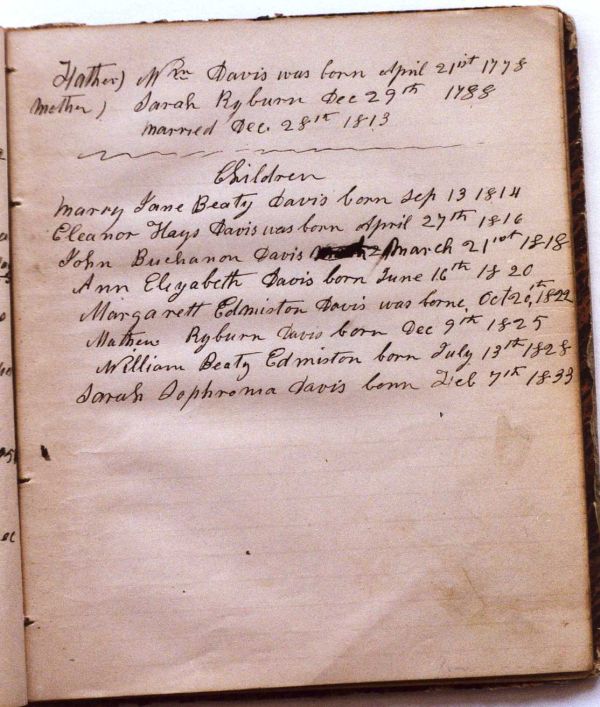 Father) Wm Davis was born April 21st 1778
Mother) Sarah Ryburn Dec 29th 1788
married Dec. 28th 1813
Children
Marry Jane Beaty Davis born Sep 13 1814
Eleanor Hays Davis was born April 27th 1816
John Buchanon Davis March 21st 1818
Ann Elizabeth Davis born June 16th 1820
Margarett Edmiston Davis was borne Oct 20th, 1822
Mathew Ryburn Davis born Dec 9th 1825
William Beaty Edmiston born July 13th 1828
Sarah Sophronia Davis born Feb 7th 1833